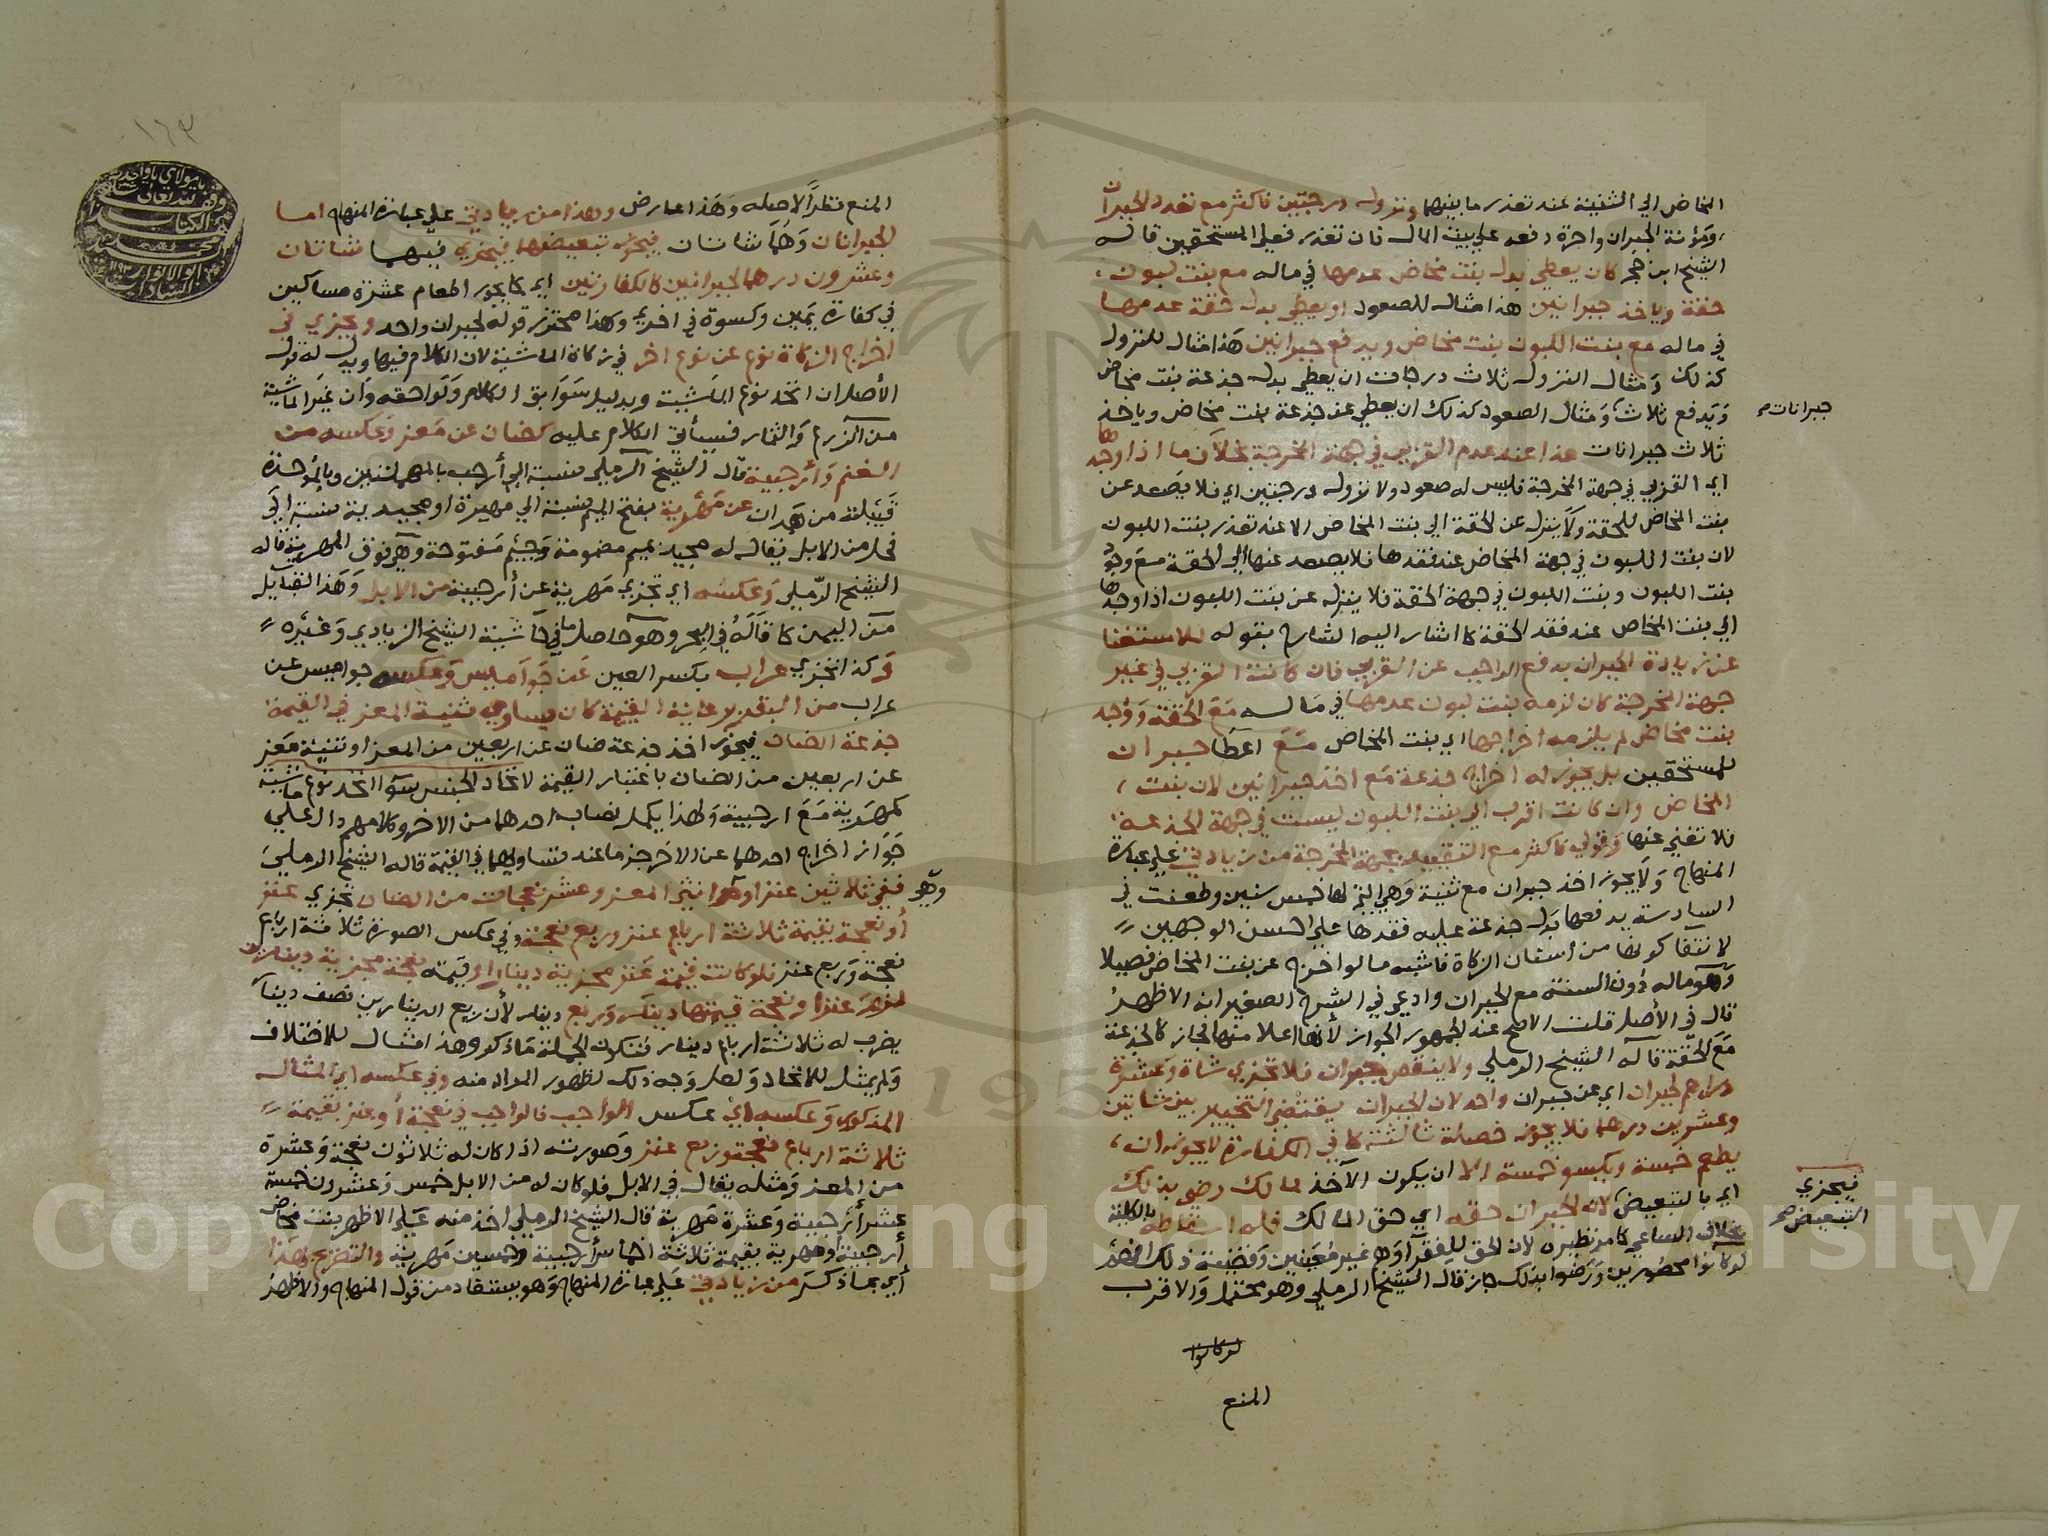 المخاض الي الثنية عند تعذر ما بينهما ونزوله درجتين فاكثر مع تعدد الجبران
ومؤنة الجبران واجرة دفعه علي بيت المال فان تعذر فعلي المستحقين قاله
الشيخ ابن حجر كان يعطي بدل بنت مخاض عدمها في ماله مع بنت لبون
حقة وياخذ جبرانين هذا مثال للصعود او يعطي بدل حقة عدمها
في ماله مع بنت اللبون بنت مخاض ويدفع جبرانين هذا مثال للنزول
كذلك ومثال النزول ثلاث درجات ان يعطي بدل جذعة بنت مخاض
ويدفع ثلاث ومثال الصعود كذلك ان يعطي عند جذعة بنت مخاض وياخذ
جبرانات
ثلاث جبرانات هذا عند عدم القربي في جهة المخرجة بخلاف ما اذا وجدها
اي القربي في جهة المخرجة فليس له صعود ولا نزول درجتين اي فلا يصعد عن
بنت المخاض للحقة ولا ينزل عن الحقة الي بنت المخاض الا عند تعذر بنت اللبون
لان بنت اللبون في جهة المخاض عند فقدها فلا يصعد عنها الي الحقة مع وجود
بنت اللبون وبنت اللبون في جهة الحقة فلا ينزل عن بنت اللبون اذا وجدها
الي بنت المخاض عند فقد الحقة كما اشار اليه الشارح بقوله للاستغنا
عن زيادة الجبران بدفع الواجب عن القربي فان كانت القربي في غير
جهة المخرجة كان لزمه بنت لبون عدمها في ماله مع الحقة ووجد
بنت مخاض لم يلزمه اخراجها اي بنت المخاض مع اعطا جبران
للمستحقين بل يجوز له اخراج جذعة مع اخذ جبرانين لان بنت
المخاض وان كانت اقرب الي بنت اللبون ليست في جهة الجذعة
فلا تغني عنها وقولي فاكثر مع التقييد بجهة المخرجة من زيادتي علي عبارة
المنهاج ولا يجوز اخذ جبران مع ثنية وهي التي لها خمس سنين وطعنت في
السادسة يدفعها بدل جذعة عليه فقدها علي احسن الوجهين
لانتفا كونها من اسنان الزكاة فاشبه ما لو اخرج عن بنت المخاض فصيلا
وهو ماله دون السنة مع الجبران وادعي في الشرح الصغير انه الاظهر
قال في الأصل قلت الاصح عند الجمهور الجواز لأنها اعلا منها فجاز كالجذعة
مع الحقة قاله الشيخ الرملي ولا ينقص جبران فلا تجزي شاة وعشرة
دراهم لجبران اي عن جبران واحد لان الجبران يقتضي التخيير بين شاتين
وعشرين درهما فلا يجوز خصلة ثالثة كما في الكفارة لا يجوز ان
يطعم خمسة ويكسو خمسة الا ان يكون الآخذ لمالك رضي بذلك
فيجزي
التبعيض صح
اي بالتبعيض لان الجبران حقه اي حق المالك فله اسقاطه بالكلية
بخلاف الساعي كما مر نظيره لان الحق للفقرا وهم غير معينين وقضيته ذلك انحصر
لو كانوا محصورين ورضوا بذلك جاز قال الشيخ الرملي وهو محتمل والاقرب
لو كانوا
المنع
١٦٣
يا مولاي يا واحد
المنع نظرا لاصله وهذا عارض وهذا من زيادتي علي عبارة المنهاج اما
الجبرانان وهما شاتان فيجوز تبعيضهما فيجزي فيهما شاتان
وعشرون درهما لجبرانين كالكفارتين اي كما يجوز اطعام عشرة مساكين
في كفارة يمين وكسوة في اخري وهذا محترز قوله لجبران واحد ويجزي في
اخراج الزكاة نوع عن نوع اخر في زكاة الماشية لان الكلام فيها ويدل له قول
الأصل ان اتحد نوع الماشية وبدليل سوابق الكلام ولواحقه وان غير الماشية
من الزرع والثمار فسيأتي الكلام عليه كضان عن معز وعكسه من
الغنم وأرحبية قال الشيخ الرملي نسبة الي أرحب بالمهملتين وبالموحدة
قبيلة من همدان عن مهرية بفتح الميم نسبة الي مهرة او مجيدية نسبة الي
فحل من الابل يقال له مجيد بميم مضمومة وجيم مفتوحة وهي فوق المهرية قاله
الشيخ الرملي وعكسه اي تجزي مهرية عن أرحبية من الابل وهذا القبايل
من اليمن كما قاله في البحر وهو حاصل ما في حاشية الشيخ الزيادي وغيره
وكذا تجزي عراب بكسر العين عن جواميس وعكسه جواميس عن
عراب من البقر برعاية القيمة كان يساوي ثنية المعز في القيمة
جذعة الضان فيجوز اخذ جذعة ضان عن اربعين من المعز او ثنية معز
عن اربعين من الضان باعتبار القيمة لاتحاد الجنس سوا اتحد نوع ماشية
كمهرية مع ارحبية ولهذا يكمل نصاب احدهما من الاخر وكلامهم دال علي
جواز اخراج احدهما عن الاخر جزما عند تساويهما في القيمة قاله الشيخ الرملي
وهو
ففي ثلاثين عنزا وهو انثي المعز وعشر نعجات من الضان تجزي عنز
أو نعجة بقيمة ثلاثة ارباع عنز وربع نعجة وفي عكس الصورة ثلاثة ارباع
نعجة وربع عنز فلو كانت قيمة عنز مجزية دينارا وقيمة نعجة مجزية دينارين
لزمه عنز او نعجة قيمتها دينار وربع دينار لأن ربع الدينارين نصف دينار
يضرب له ثلاثة ارباع دينار فتكون الجملة ما ذكر وهذا مثال للاختلاف
ولم يمثل للاتحاد ولعل وجه ذلك لظهور المراد منه وفي عكسه اي المثال
المذكور وعكسه اي عكس الواجب فالواجب في نعجة أو عنز بقيمة
ثلاثة ارباع نعجة وربع عنز وصورته اذا كان له ثلاثون نعجة وعشرة
من المعز ومثله يقال في الابل فلو كان له من الابل خمس وعشرون خمسة
عشر أرحبية وعشرة مهرية قال الشيخ الرملي اخذ منه علي الاظهر بنت مخاض
أرحبية أو مهرية بقيمة ثلاثة اخماس أرحبية وخمسين مهرية والتصريح بهذا
أي بما ذكر من زيادتي علي عبارة المنهاج وهو يستفاد من قول المنهاج والاظهر